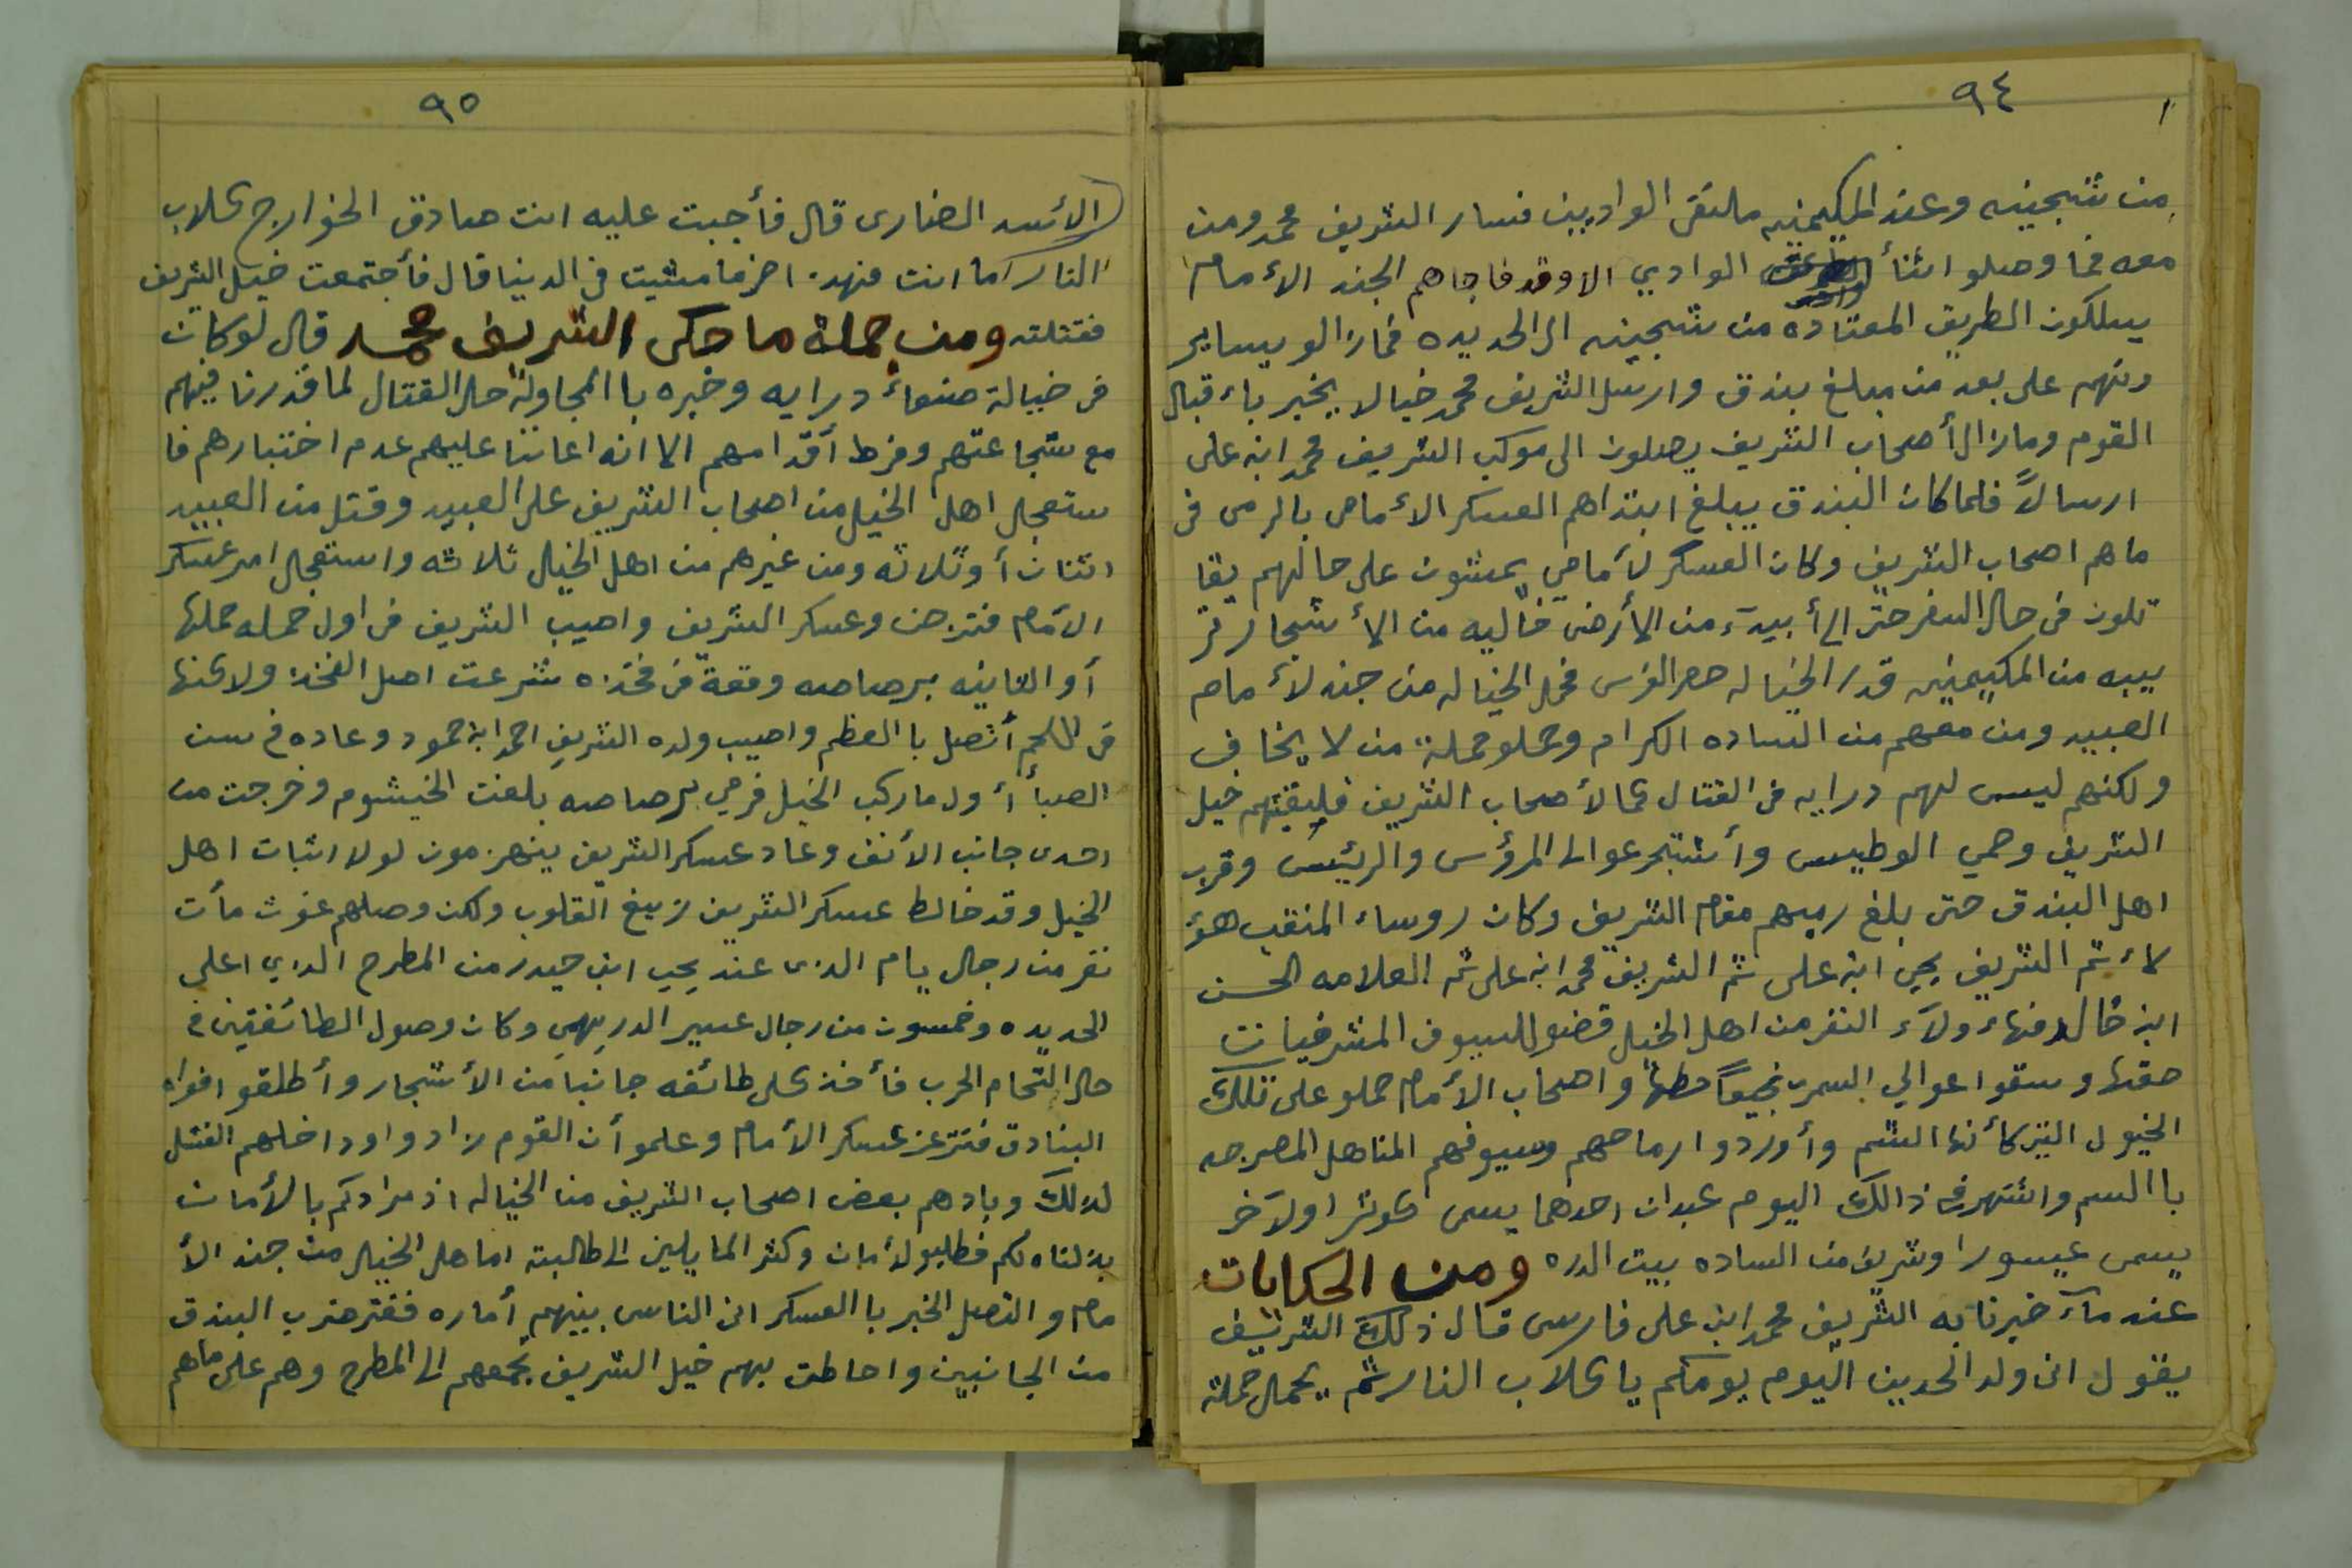 ٩٤
من شجينه وعند المكيمنيه ملتقى الواديين فسار الشريف محمد ومن
معه فما وصلو اثنأ الوادي الا وقد فاجاهم الجند الأمام
يسلكون الطريق المعتاده من شجينه الى الحديده فمازالو يساير
ونهم على بعد من مبلغ بندق وارسل الشريف محمد خيالا يخبر باء قبال
القوم ومازال أصحاب الشريف يصلون الى موكب الشريف محمد ابن على
ارسالاً فلما كان البندق يبلغ ابتداهم العسكر الأمامى بالرمى فى
ماهم اصحاب الشريف وكان العسكر لأمامي يمشون على حالهم يقا
تلون فى حال السفر حتى الى أبيدآء من الأرض خاليه من الأشجار قر
يبه من المكيمنيه قدر الخياله حصر الفرس فحمل الخياله من جند لأمام
العبيد ومن معهم من الساده الكرام وحملو حملة من لا يخاف
ولكنهم ليس لهم درايه فى القتال كما لأصحاب الشريف فلقيتهم خيل
الشريف وحمي الوطيس وأشتجر عوالى المرؤس والرئيس وقرب
اهل البندق حتى بلغ رميهم مقام الشريف وكان روساء المنقب هؤ
لاء ثم الشريف يحي ابن على ثم الشريف محمد ابن على ثم العلامه الحسن
ابن خالد فهاء ولآء النفر من اهل الخيل قضو للسيوف المشرفيات
حقها وسقوا عوالي السمر نجيعاً حطها واصحاب الأمام حملو على تلك
الخيول التى كأنها الشم وأوردوا رماحهم وسيوفهم المناهل المصرحه
باالسم واشتهر فى ذالك اليوم عبدان احدهما يسمى كوثرا ولآخر
يسمى عيسورا وشريف من الساده بيت الدره ومن الحكايات
عندمآ خبرنا به الشريف محمد ابن على فارس قال ذلك الشريف
يقول انى ولد الحدين اليوم يومكم يا كلاب النار ثم يحمل حملة
٩٥
الأسد الضارى قال فأجبت عليه انت صادق الخوارج كلاب
النار كما انت منهد اخر ما مشيت فى الدينا قال فأجتمعت خيل الشريف
فقتلته ومن جملة ما حكى الشريف محمد قال لو كان
فى خيالة صنعاء درايه وخبره باالمجاولة حال القتال لما قدرنا فيهم
مع شجاعتهم وفرط أقدامهم الا انه اعاننا عليهم عدم اختبارهم فا
ستعجل اهل الخيل من اصحاب الشريف على العبيد وقتل من العبيد
اثنان أو ثلاثه ومن غيرهم من اهل الخيل ثلاثه واستعجال امر عسكر
الأمام فتزحن وعسكر الشريف واصيب الشريف فى اول حمله حملها
أو الثانيه برصاصه وقعة فى فخذه شرعت اصل الفخذ ولاكنها
فى اللحم أتصل باالعظم واصيب ولده الشريف احمد ابن حمود وعاده فى سن
الصبأ أول ماركب الخيل فرمي برصاصه بلغت الخيشوم وخرجت من
احدى جانب الأنف وعاد عسكر الشريف ينهزمون لولا اثبات اهل
الخيل وقد خالط عسكر الشريف زيغ القلوب ولكن وصلهم غوث مأت
نفر من رجال يام الذى عند يحي ابن حيدر من المطرح الذي اعلى
الحديده وخمسون من رجال عسير الدريهمي وكان وصول الطائفتين فى
حال التحام الحرب فأخذ كل طائفه جانبا من الأشجار وأطلقو افواه
البنادق فتزعزع عسكر الأمام وعلمو أن القوم زادوا وداخلهم الفشل
لذلك وبادهم بعض اصحاب الشريف من الخياله اذ مرادكم بالأمان
بذلناه لكم فطلبو لأمان وكثر المايلين الى طالبته اما هل الخيل من جند الأ
مام والتصل الخبر باالعسكر ان الناس بينهم أماره ففتر ضرب البندق
من الجانبين واحاطت بهم خيل الشريف تجمعهم الى المطرح وهم على ماهم